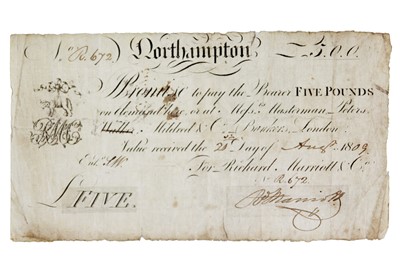 No. R.672. Northampton £5.0.0.
I Promise to pay the Bearer FIVE POUNDS
on demand here, or at Messrs. Masterman, Peters,
Mildred & Co. Bankers, London.
Value received the 21 Day of Augt. 1809
Entd. For Richard Marriott & Co.
No. R.672.
£FIVE. Rd. Marriott